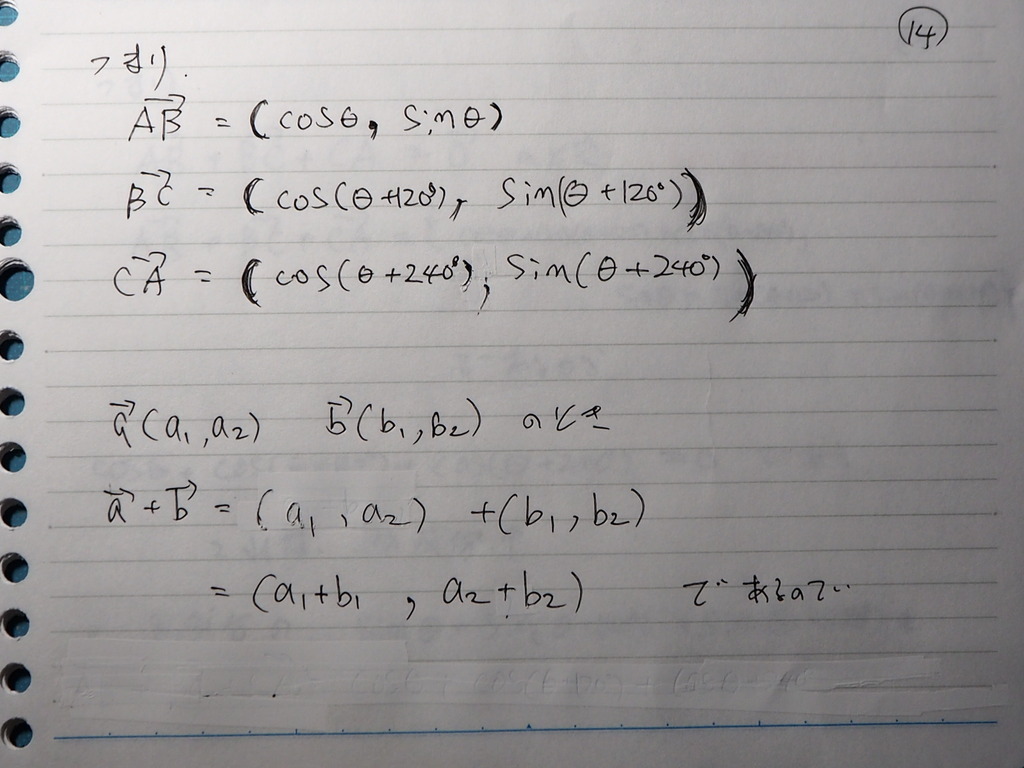 ⑭
つまり.
→AB = (cosθ, sinθ)
→BC = (cos(θ+120°), sin(θ+120°))
→CA = (cos(θ+240°), sin(θ+240°))
→a(a₁,a₂) →b(b₁,b₂) のとき
→a+→b = (a₁,a₂) +(b₁,b₂)
= (a₁+b₁ , a₂+b₂) であるので‥